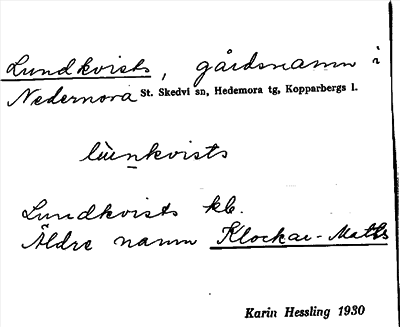 Lundkvists, gårdsnamn i
Nedernora St. Skedvi sn, Hedemora tg, Kopparbergs l.
lùnkvists
Lundkvists kb.
Äldre namn Klockar-Matts
Karin Hessling 1930